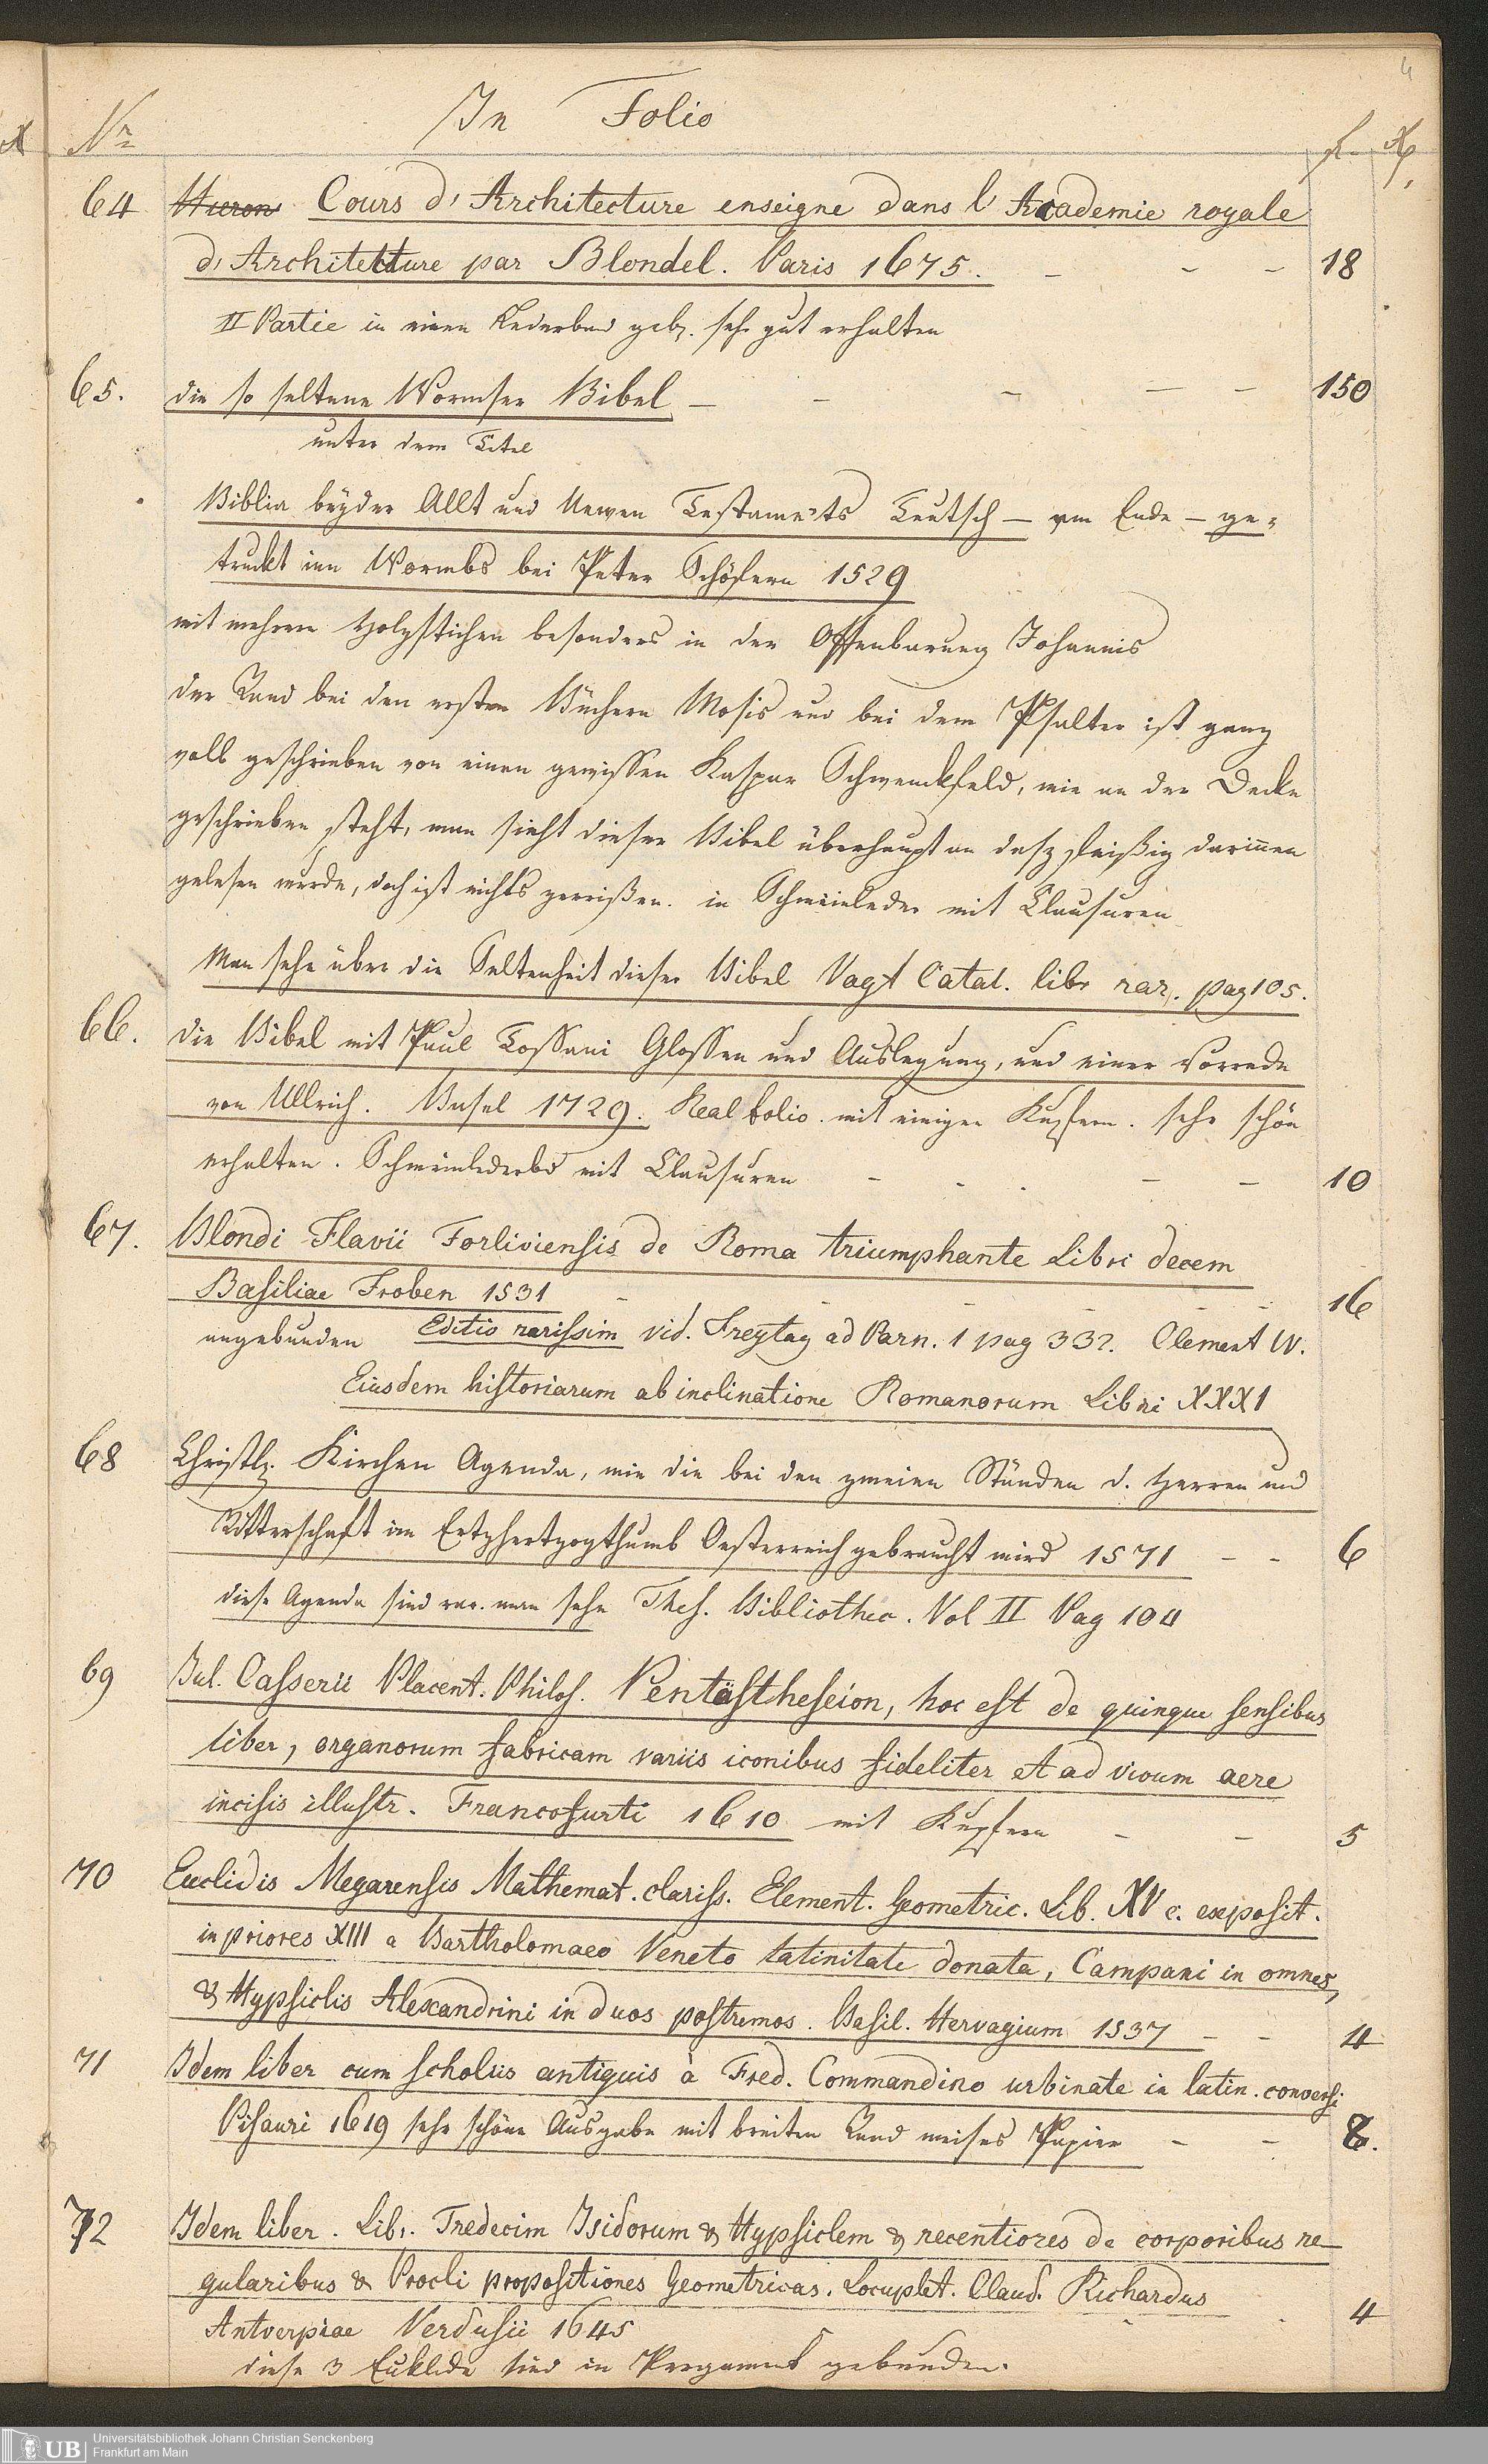 4
In Folio
Nr
f. X
64 Hieron Cours d'Architecture enseigne dans l'Academie royale
d'Architecture par Blondel. Paris 1675. — - - 18
II Partie in einen Lederband geb. sehr gut erhalten
65. die so seltene Wormser Bibel — - - — - 150
unter dem Titel
Biblia beyder Allt und Newen Testaments Teutsch — am Ende — ge=
truckt inn Wormbs bei Peter Schöfern 1529
mit mehren Holzstichen besonders in der Offenbarung Johannis
der Rand bei den ersten Büchern Mosis und bei dem Psalter ist ganz
voll geschrieben von einen gewissen Kaspar Schwenckfeld, wie an der Decke
geschrieben steht, man sieht dieser Bibel überhaupt an dasz fleißig darinnen
gelesen wurde, doch ist nichts zerrißen. in Schweinleder mit Clausuren
Man sehe über die Seltenheit dieser Bibel Vogt Catal. libr rar. pag 105.
66. die Bibel mit Paul Tossani Glossen und Auslegung, und einer Vorrede
von Ullrich. Basel 1729. Real folio. mit einigen Kupfern. sehr schön
erhalten. Schweinlederbd mit Clausuren - - . — - 10
67. Blondi Flavii Forliviensis de Roma triumphante Libri decem
Basiliae Froben 1531 - - - - - - 16
angebunden Editio rarissim vid. Freytag ad Parn. 1 pag 332. Clement IV.
Eiusdem historiarum ab inclinatione Romanorum Libri XXXI
68 Christl. Kirchen Agenda, wie die bei den zweien Ständen d. Herren und
Ritterschaft im Ertzhertzogthumb Oesterreich gebraucht wird 1571 - - 6
diese Agenda sind rar. man sehe Thes. Bibliothec. Vol II Pag 104
69 Jul. Casserii Placent. Philos. Pentästheseion, hoc est de quinque sensibus
liber, organorum fabricam variis iconibus fideliter et ad vivum aere
incisis illustr. Francofurti 1610 mit Kupfern - - 5
70 Euclidis Megarensis Mathemat. clariss. Element. Geometric. Lib. XV c. exposit.
in priores XIII a Bartholomaeo Veneto latinitate donata, Campani in omnes,
& Hypsiclis Alexandrini in duos postremos. Basil. Hervagium 1537 - - 4
71 Idem liber cum scholiis antiquis à Fred. Commandino urbinate in latin. conversi
Pisauri 1619 sehr schöne Ausgabe mit breiten Rand weises Papier - -
72 Idem liber. Libr. Tredecim Isidorum & Hypsiclem & recentiores de corporibus re-
gularibus & Procli propositiones Geometricas. Locuplet. Claud. Richardus
Antverpiae Verdusii 1645 - - 4
diese 3 Euklide sind in Pergament gebunden.
UB Universitätsbibliothek Johann Christian Senckenberg
Frankfurt am Main